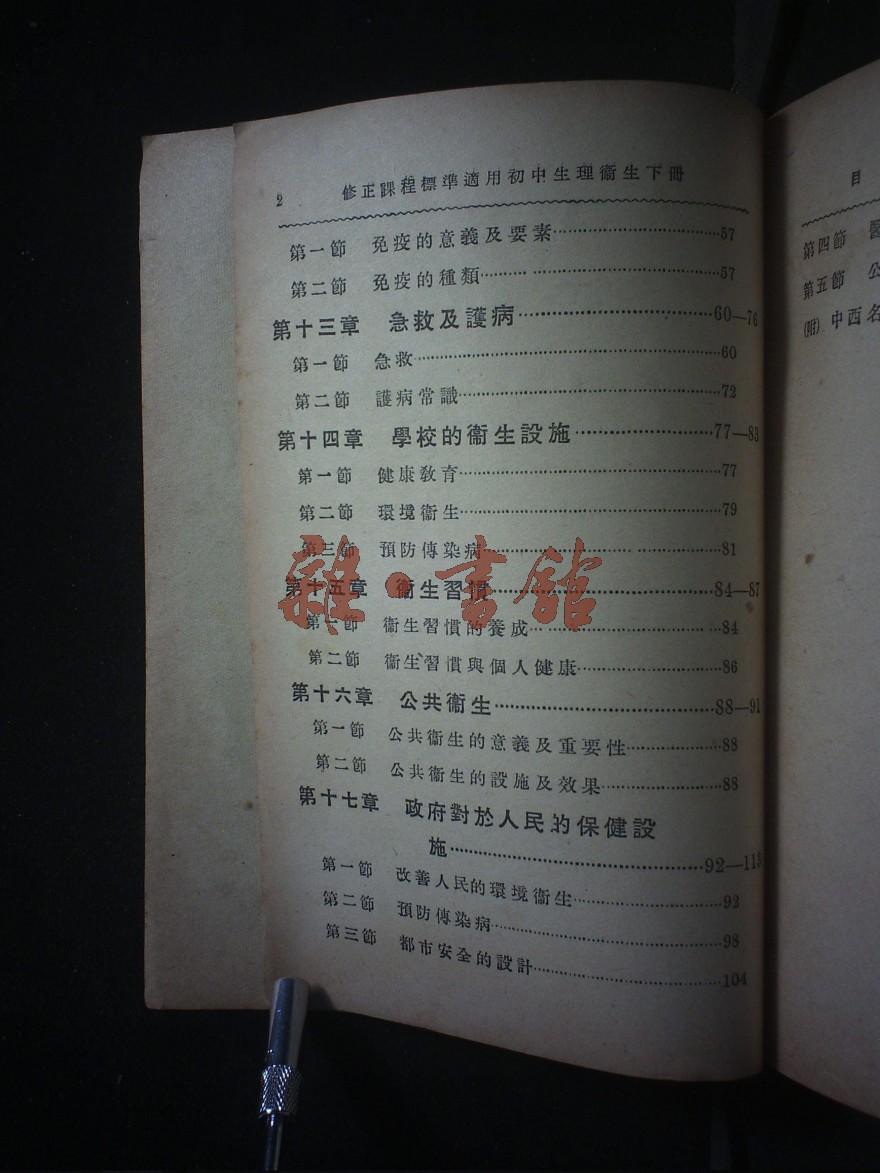 2 修正課程標準適用初中生理衞生下冊
第一節 免疫的意義及要素……57
第二節 免疫的種類……57
第十三章 急救及護病……60—76
第一節 急救……60
第二節 護病常識……72
第十四章 學校的衞生設施……77—83
第一節 健康敎育……77
第二節 環境衞生……79
第三節 預防傳染病……81
第十五章 衞生習慣……84—87
第一節 衞生習慣的養成……84
第二節 衞生習慣與個人健康……86
第十六章 公共衞生……88—91
第一節 公共衞生的意義及重要性……88
第二節 公共衞生的設施及效果……88
第十七章 政府對於人民的保健設
施……92—113
第一節 改善人民的環境衞生……92
第二節 預防傳染病……98
第三節 都市安全的設計……104
雜·書館
目
第四節 醫
第五節 公
(附) 中西名